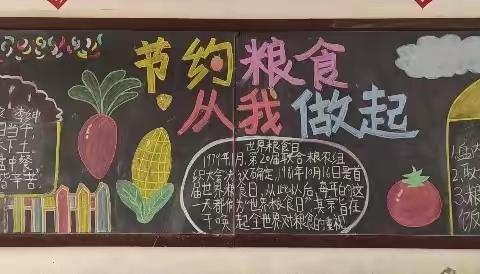 节约粮食
从我做起
李绅
日当午
禾下土
盘中餐
皆辛苦
世界粮食日
1979年11月,第20届联合国粮农组
织大会决议确定,1981年10月16日是首
届世界粮食日,从此以后,每年的这
一天都作为"世界粮食日",其宗旨在
于唤起全世界对粮食的重视
1.
2.
3.